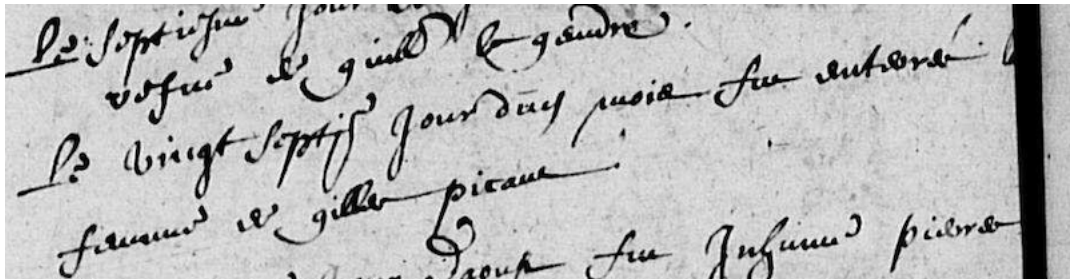 Le septiesme jour
vefue de guill le gendre.
Le vingt septis jour dud mois fut enterée
femme de gilles picaut
aoust fut Inhumé pierre